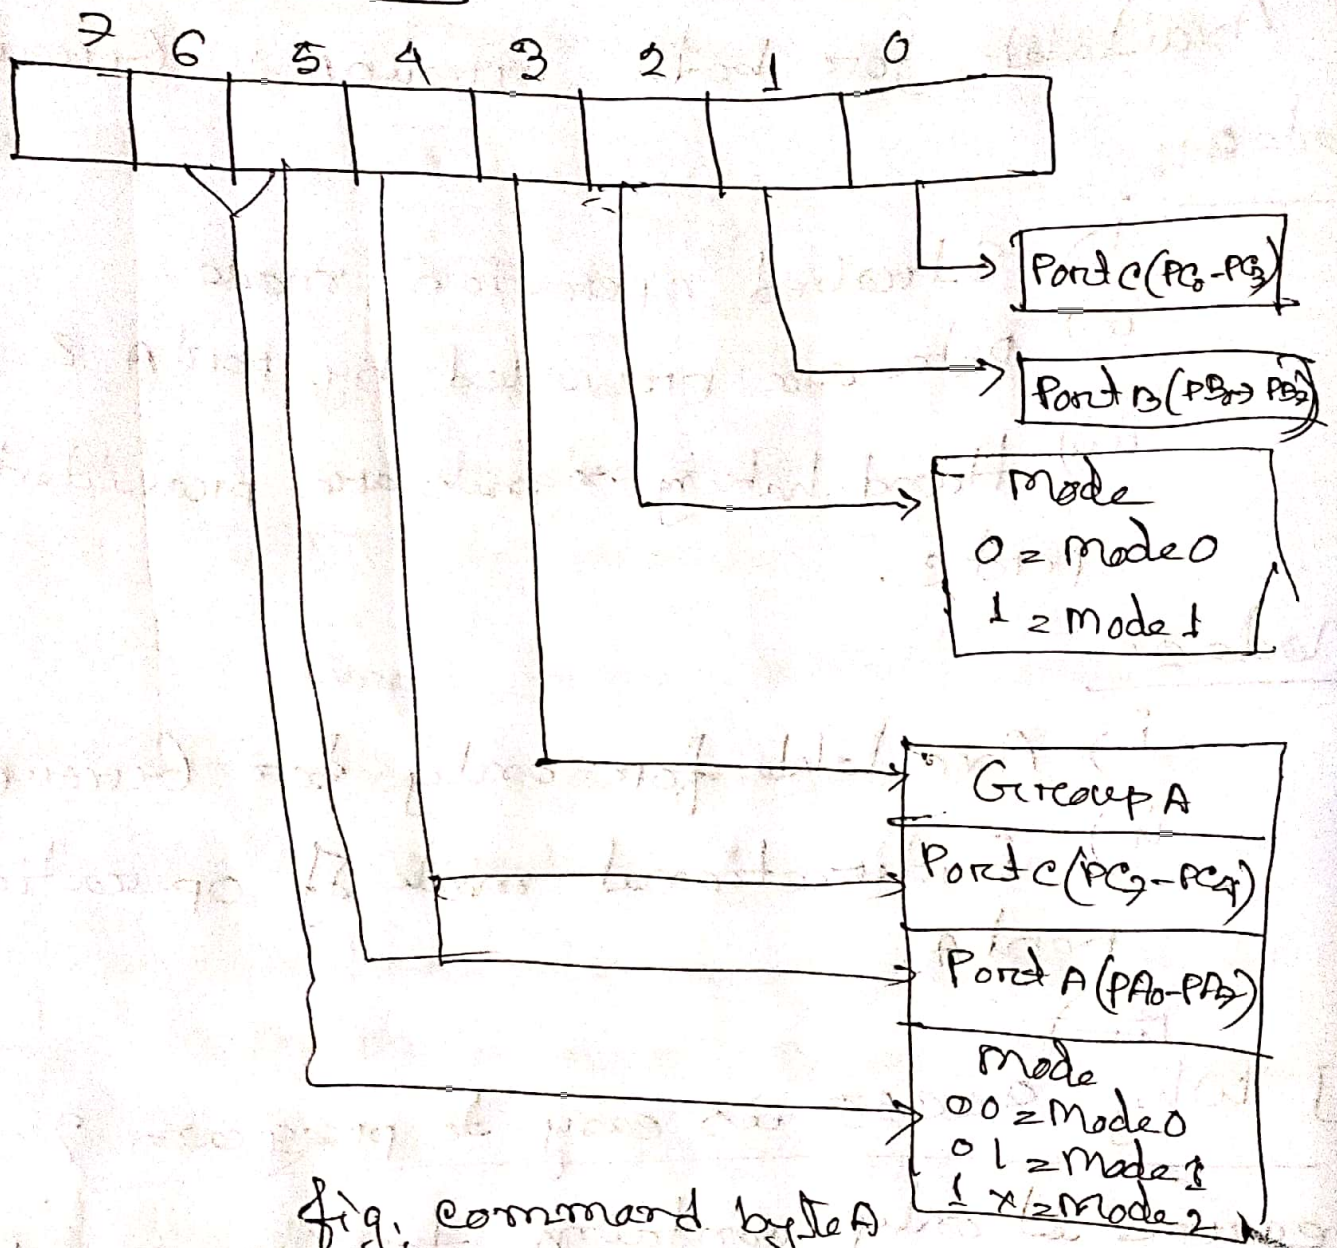 7 6 5 4 3 2 1 0
Port C (PC0-PC3)
Port B (PB0→PB7)
Mode
0 = Mode 0
1 = Mode 1
Group A
Port C (PC7-PC4)
Port A (PA0-PA7)
Mode
00 = Mode 0
01 = Mode 1
1 X = Mode 2
fig. command byte A